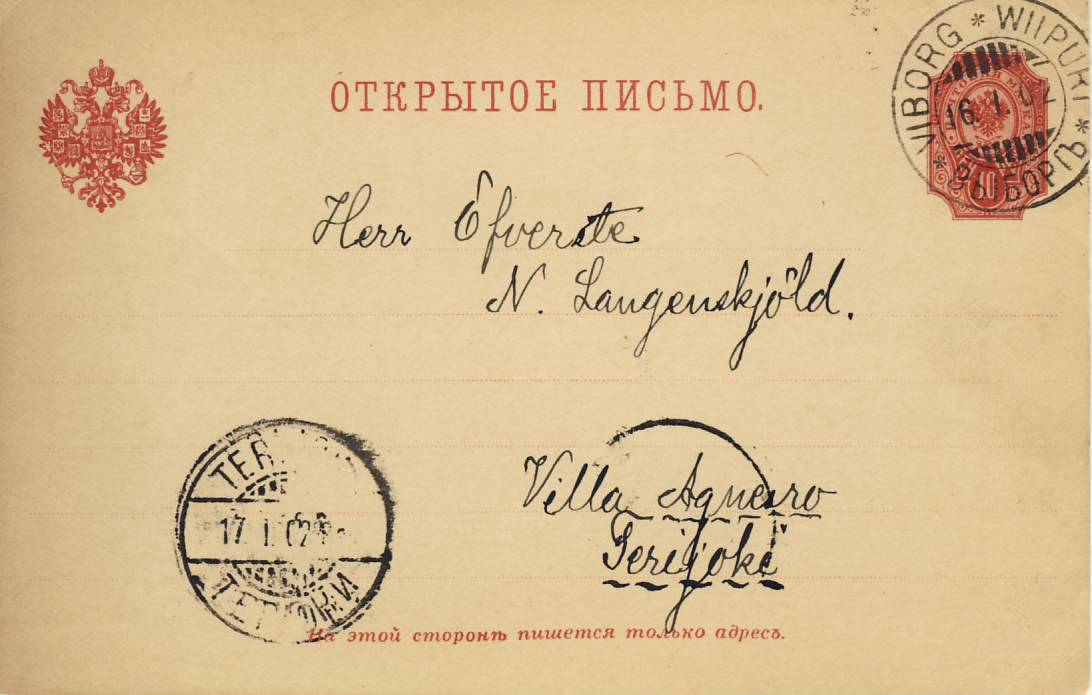 ОТКРЫТОЕ ПИСЬМО.
VIBORG * WIIPURI * ВЫБОРГЪ *
16. I. 02
10
Herr Öfverste
N. Langenskjöld.
Villa
Terijoki
17. I. 02
ТЕРІОКИ
На этой сторонѣ пишется только адресъ.